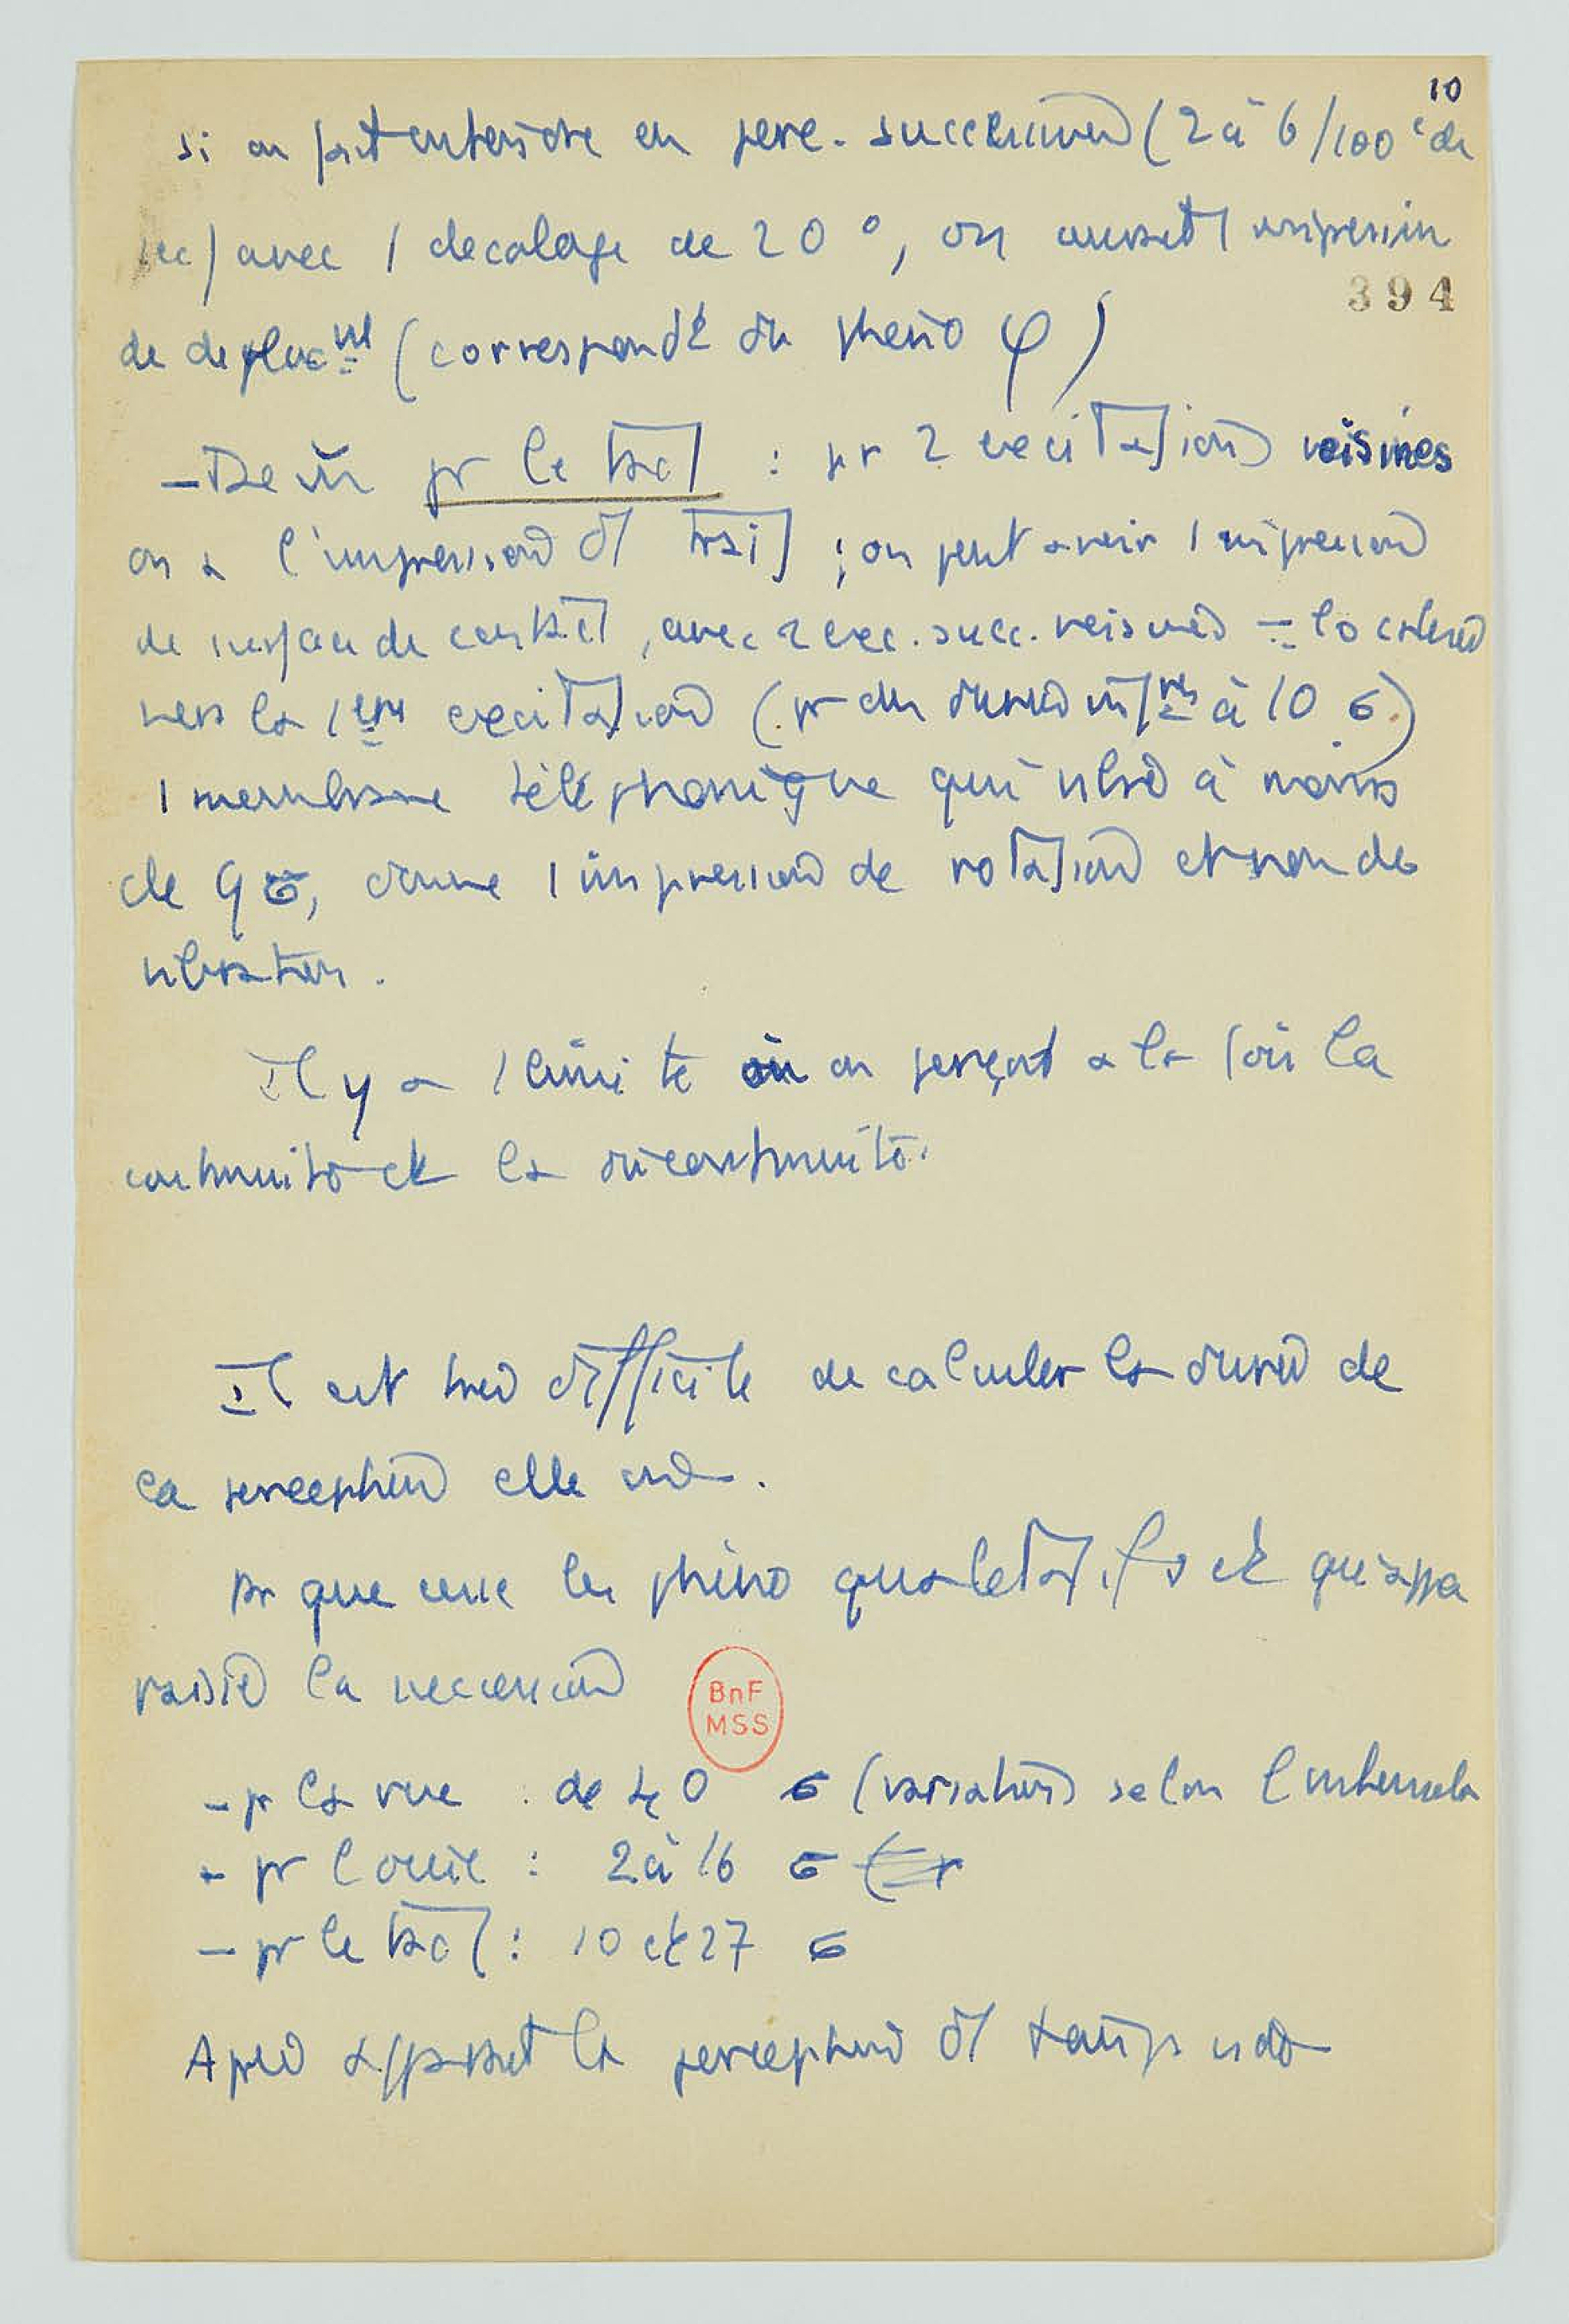 10
si on fait entendre en perc. successives (2 à 6/100e de
sec) avec 1 decalage de 20°, on aussi 1 impression
394
de deplacmt (correspondt du pheno φ)
- De m pr le tact : pr 2 excitations voisines
on a l'impression d1 trait ; on peut avoir 1 impression
de surface de contact, avec 2 exc. succ. voisines = localisées
vers la 1ere excitation (pr des durées infres à 10 σ)
1 membrane téléphonique qui vibre à moins
de 9 σ, donne 1 impression de rotation et non de
vibration.
Il y a 1 limite où on perçoit a la fois la
continuité et la discontinuité.
Il est très difficile de calculer la durée de
la perception elle
pr que les phéno qualitatifs et qu'appa
raisse la succession
BnF
MSS
- pr la vue : de 40 σ (variations selon l'intervalle
- pr l'ouïe : 2 à 16 σ
- pr le tact : 10 et 27 σ
Après apparait la perception d1 temps vide